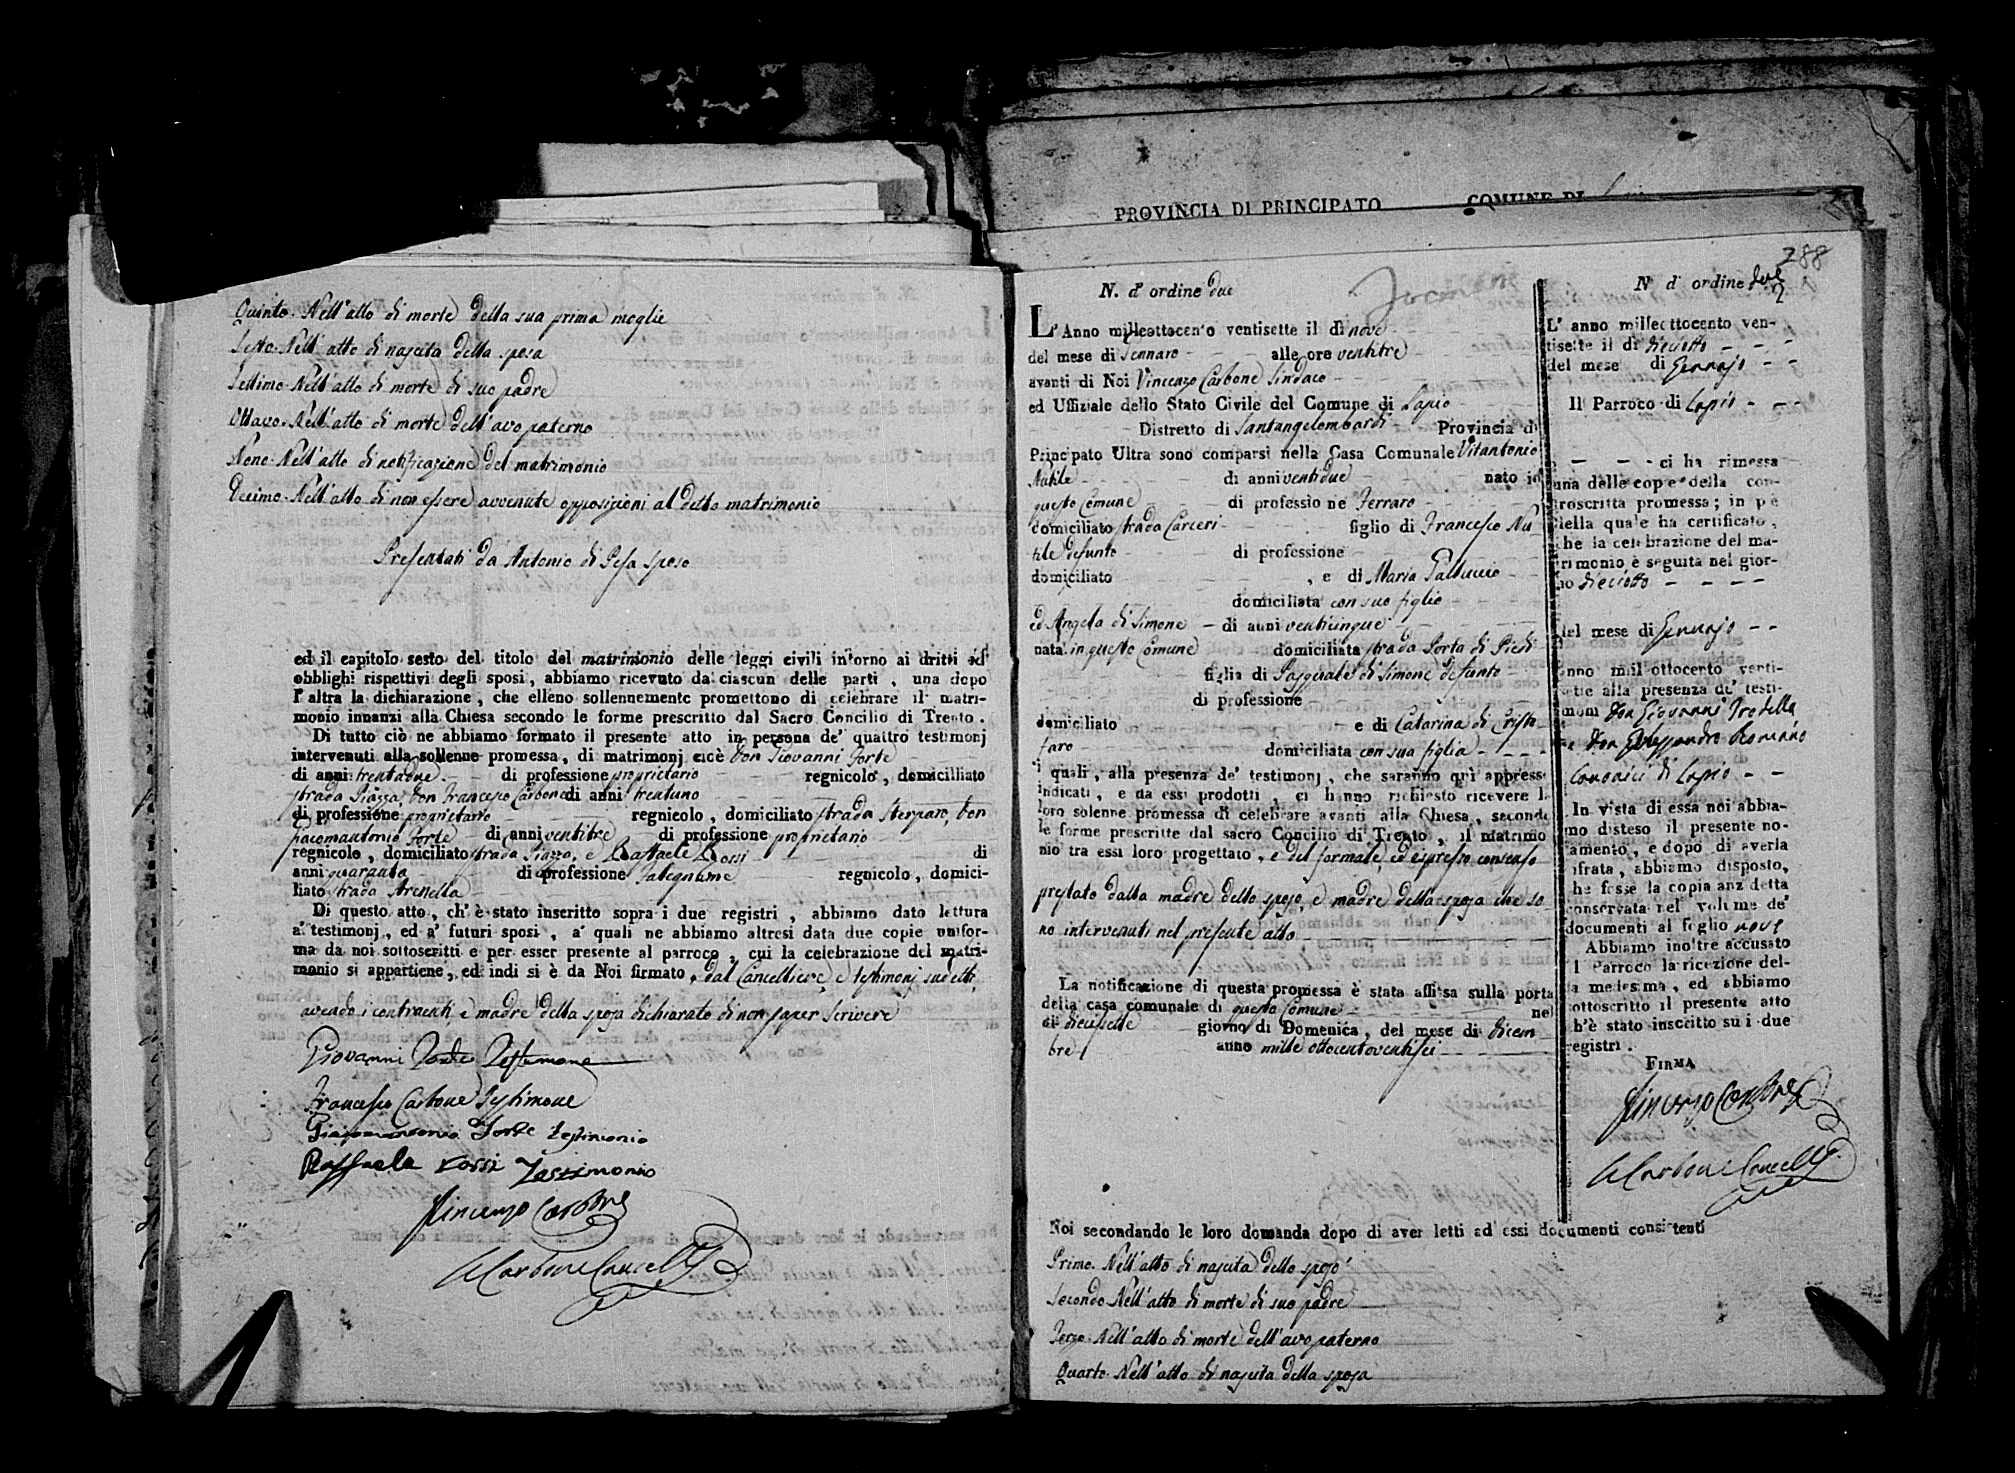 Quinto. Nell'atto di morte della sua prima moglie
Sesto. Nell'atto di nascita della sposa
Settimo. Nell'atto di morte di suo padre
Ottavo. Nell'atto di morte dell'avo paterno
Nono. Nell'atto di notificazione del matrimonio
Decimo. Nell'atto di non essere avvenute opposizioni al detto matrimonio
Presentati da Antonio di Pesa sposo
ed il capitolo sesto del titolo del matrimonio delle leggi civili intorno ai dritti ed
obblighi rispettivi degli sposi, abbiamo ricevuto da ciascun delle parti, una dopo
l'altra la dichiarazione, che elleno sollennemente promettono di celebrare il matri-
monio innanzi alla Chiesa secondo le forme prescritto dal Sacro Concilio di Trento.
Di tutto ciò ne abbiamo formato il presente atto in persona de' quattro testimonj
intervenuti alla sollenne promessa, di matrimonj cicè Don Giovanni Forte
di anni trentadue di professione proprietario regnicolo, domicilliato
strada Piazza, Don Francesco Carbone di anni trentuno
di professione proprietario regnicolo, domiciliato strada Sterparo, Don
Giacomantonio Forte di anni ventitre di professione proprietario
regnicolo, domiciliato strada Piazza, e Raffaele Rossi di
anni quaranta di professione Falegname regnicolo, domici-
liato strada Arenella
Di questo atto, ch'è stato inscritto sopra i due registri, abbiamo dato lettura
a' testimonj, ed a' futuri sposi, a' quali ne abbiamo altresì data due copie unifor-
ma da noi sottoscritti e per esser presente al parroco, cui la celebrazione del matri-
monio si appartiene, ed indi si è da Noi firmato, dal Cancelliere, e testimonj sudetti,
avendo i contraenti, e madre della sposa dichiarato di non saper scrivere
Giovanni Forte Testimone
Francesco Carbone Testimone
Giacomantonio Forte testimonio
Raffaele Rossi Testimonio
Vincenzo Carbone
Carbone Cancell.
PROVINCIA DI PRINCIPATO COMUNE DI
288
N. d' ordine due
L'Anno milleottocento ventisette il dì nove
del mese di Gennaro alle ore ventitre
avanti di Noi Vincenzo Carbone Sindaco
ed Uffiziale dello Stato Civile del Comune di Lapio
Distretto di Santangelombardi Provincia di
Principato Ultra sono comparsi nella Casa Comunale Vitantonio
Nutile di anni ventidue nato in
questo Comune di professione Ferraro
domiciliato strada Carceri figlio di Francesco Nu-
tile defunto di professione
domiciliato , e di Maria Galluccio
domiciliata con suo figlio
ed Angela di Simone di anni venticinque
nata in questo Comune domiciliata strada Porta di Piedi
figlia di Pasquale di Simone defunto
di professione
domiciliato e di Catarina di Cristo-
faro domiciliata con sua figlia
i quali, alla presenza de' testimonj, che saranno quì appresso
indicati, e da essi prodotti, ci hanno richiesto ricevere la
loro solenne promessa di celebrare avanti alla Chiesa, secondo
le forme prescritte dal sacro Concilio di Trento, il matrimo
nio tra essi loro progettato, e del formale, ed espresso consenso
prestato dalla madre dello sposo, e madre della sposa che so-
no intervenuti nel presente atto
La notificazione di questa promessa è stata affissa sulla porta
della casa comunale di questo Comune nel
dì diecisette giorno di Domenica, del mese di Dicem-
bre anno mille ottocentoventisei
N d' ordine due
2
L' anno milleottocento ven-
tisette il dì dieciotto
del mese di Gennajo
Il Parroco di Lapio
ci ha rimessa
una delle copie della con-
troscritta promessa; in piè
della quale ha certificato,
che la celebrazione del ma-
trimonio è seguita nel gior-
no dieciotto
del mese di Gennajo
anno mill'ottocento venti-
sette alla presenza de' testi-
monj Don Giovanni Trodella
e Don Alessandro Romano
Canonici di Lapio
In vista di essa noi abbia-
mo disteso il presente no-
tamento, e dopo di averla
cifrata, abbiamo disposto,
che fosse la copia anzidetta
conservata nel volume de'
documenti al foglio nove
Abbiamo inoltre accusato
al Parroco la ricezione del-
la medesima, ed abbiamo
sottoscritto il presente atto
ch'è stato inscritto su i due
registri.
FIRMA
Vincenzo Carbone
Carbone Cancell.
Noi secondando le loro domanda dopo di aver letti ad essi documenti consistenti
Primo. Nell'atto di nascita dello sposo
Secondo. Nell'atto di morte di suo padre
Terzo. Nell'atto di morte dell'avo paterno
Quarto. Nell'atto di nascita della sposa